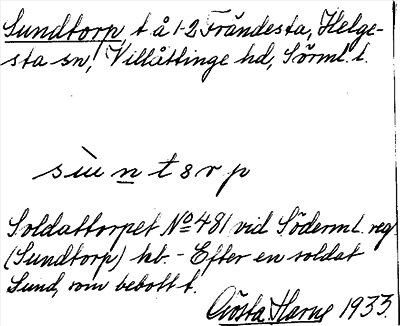 Sundtorp, t å 1-2 Frändesta, Helge-
sta sn, Villåttinge hd, Sörml. l.
sùntorp
Soldattorpet No 481 vid Söderml. reg
(Sundtorp) hb. - Efter en soldat
Sund, som bebott t.
Gösta Harne 1933.